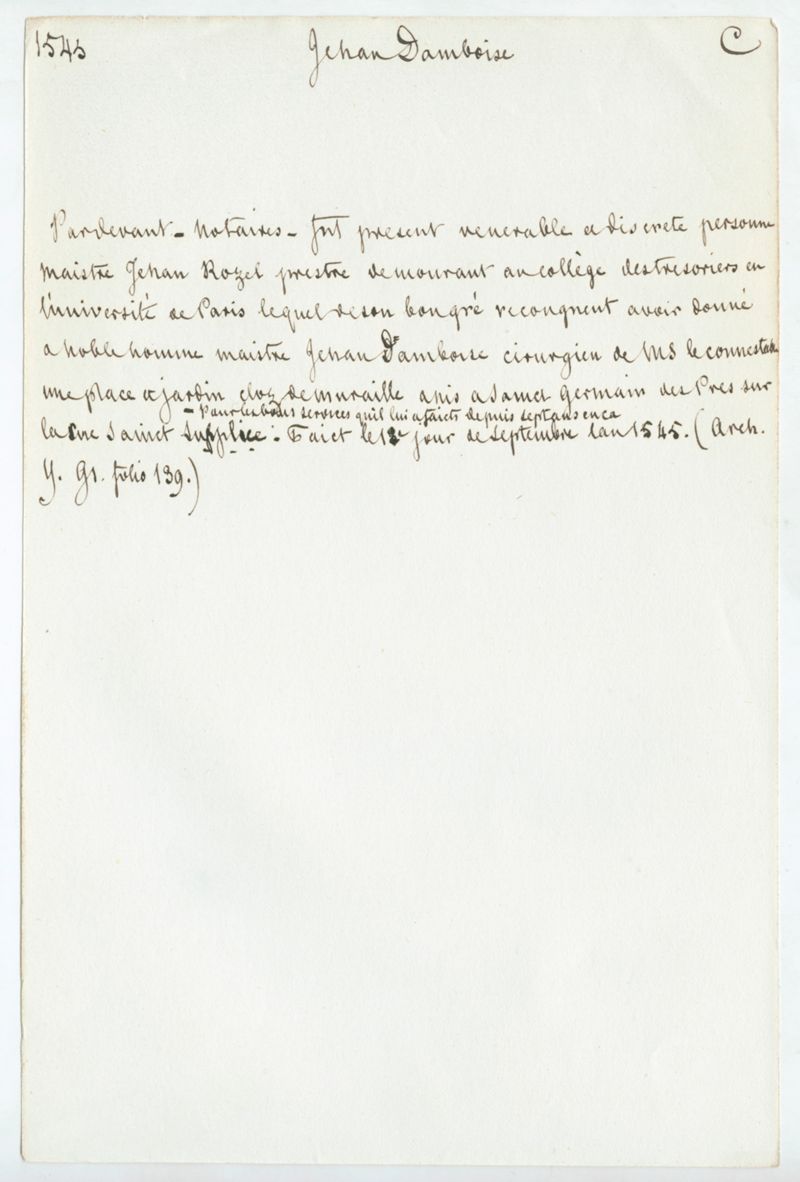 1545 Jehan Damboise C
Pardevant - Notaires - fut present venerable et discrete personne
Maistre Jehan Rozel prestre demourant au collège des tresoriers en
l'université de Paris lequel de son bongré recongneut avoir donné
a noble homme maistre Jehan D'amboise cirurgien de MS le connestable
une place et jardin cloz de muraille assis a Sainct Germain des Pres sur
- Pour les bons services quil lui a faicts depuis sept ans en ca
la rue Sainct Supplice. Faict le 12e jour de Septembre lan 1545. (Arch.
Y. 91. folio 139.)